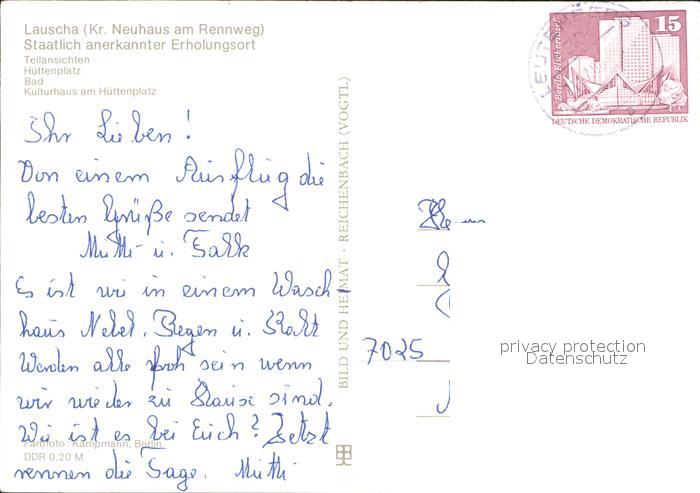 Lauscha (Kr. Neuhaus am Rennweg)
Staatlich anerkannter Erholungsort
Teilansichten
Hüttenplatz
Bad
Kulturhaus am Hüttenplatz
Ihr Lieben!
Von einem Ausflug die
besten Grüße sendet
Mutti u.
Es ist wie in einem Wasch-
haus Nebel, Regen u. Kalt
Werden alle froh sein wenn
wir wieder zu Hause sind.
Wie ist es bei Euch? Jetzt
rennen die Tage. Mutti
Farbfoto: Kampmann, Berlin
DDR 0,20 M
BILD UND HEIMAT · REICHENBACH (VOGTL)
15
DEUTSCHE DEMOKRATISCHE REPUBLIK
7025
privacy protection
Datenschutz